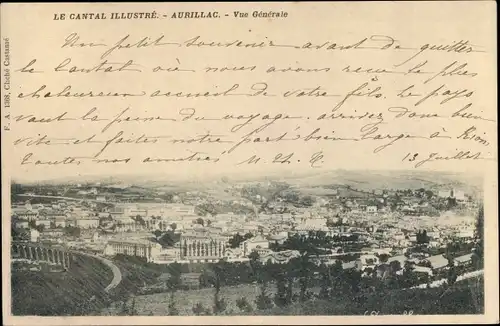 LE CANTAL ILLUSTRÉ. - AURILLAC. - Vue Générale
Un petit souvenir avant de quitter
le Cantal où nous avons reçu le plus
chaleureux accueil de votre fils. Le pays
vaut la peine du voyage. arrivez donc bien
vite et faites notre part bien large à
Toutes nos amitiés
13 juillet
F. A. 1398, Cliché Castané